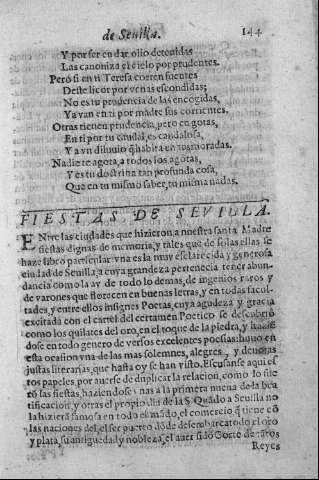 de Sevilla. 144
Y por ser en dar olio detenidas
Las canoniza el cielo por prudentes.
Però si en ti Teresa corren fuentes
Deste licor por venas escondidas;
No es tu prudencia de las encogidas,
Ya van en ti por madre sus corrientes.
Otras tienen prudencia, pero en gotas,
En ti por tu caudal, es caudalosa,
Y a vn diluuio q̃ habita en tus moradas.
Nadie te agota, a todos los agotas,
Y es tu doctrina tan profunda cosa,
Que en tu mismo saber, tu misma nadas.
FIESTAS DE SEVILLA.
ENtre las ciudades que hizieron a nuestra santa Madre
fiestas dignas de memoria, y tales que de solas ellas se
haze libro particular vna es la muy esclarecida y generosa
ciudad de Seuilla, a cuya grandeza pertenecia tener abun-
dancia como la ay de todo lo demas, de ingenios raros y
de varones que florecen en buenas letras, y en todas facul-
tades, y entre ellos insignes Poetas, cuya agudeza y gracia
excitada con el cartel del certamen Poetico se descubriò
como los quilates del oro, en el toque de la piedra, y hazië
dose en todo genero de versos excelentes poesias: huuo en
esta ocasion vna de las mas solemnes, alegres, y deuotas
justas literarias, que hasta oy se han visto. Escusanse aqui es
tos papeles, por auerse de duplicar la relacion, como se
las fiestas, haziendose vnas a la primera nueua de la bea
tificacion, y otras el propio dia de la S. Quãdo a Seuilla no
la hiziera famosa en todo el mũdo, el comercio q̃ tiene cõ
las naciones del, el ser puerto dõde desembarca todo el oro
y plata, su antiguedad y nobleza, el auer sido Corte de
Reyes